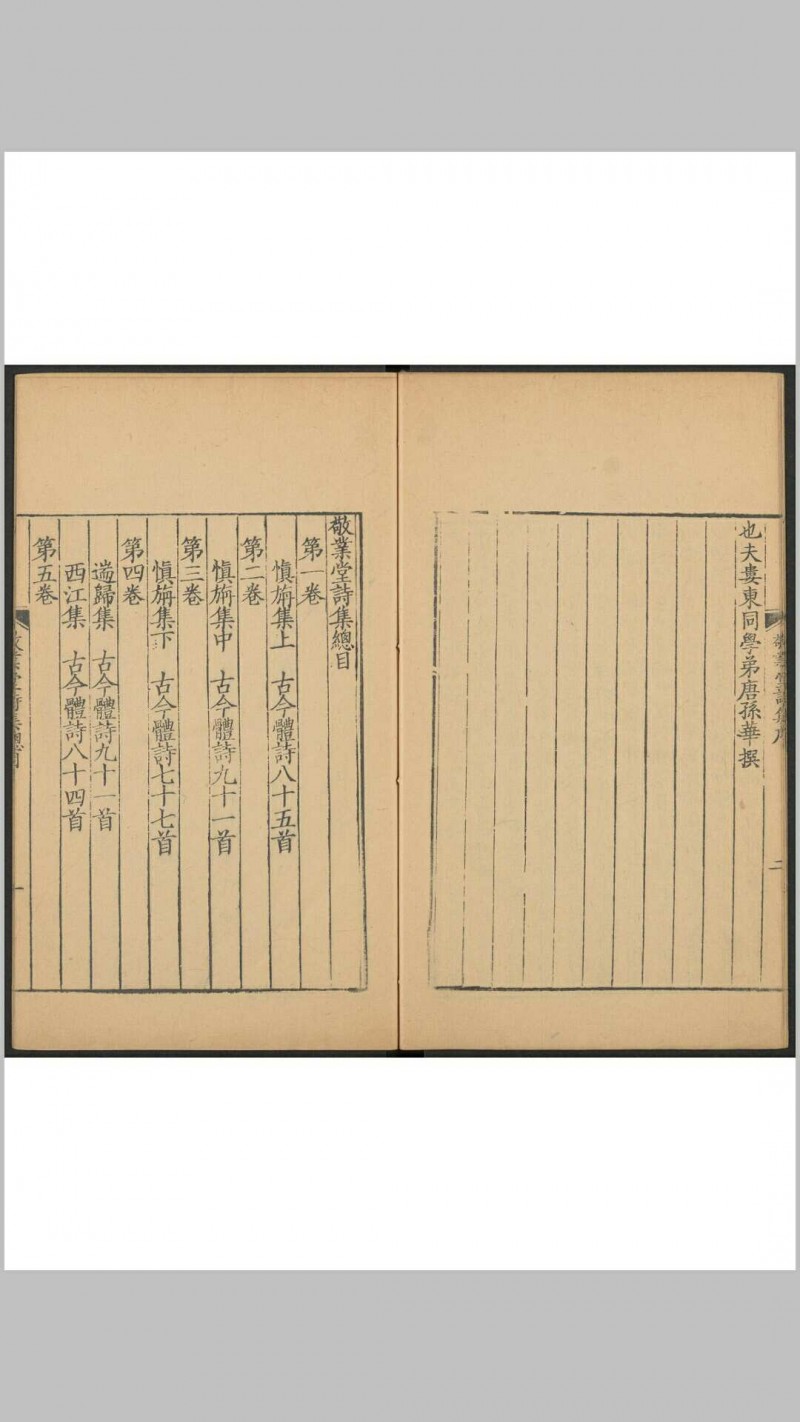 也夫婁東同學弟唐孫華撰
敬業堂詩集序
二
敬業堂詩集總目
第一卷
愼旃集上 古今體詩八十五首
第二卷
愼旃集中 古今體詩九十一首
第三卷
愼旃集下 古今體詩七十七首
第四卷
遄歸集 古今體詩九十一首
西江集 古今體詩八十四首
第五卷
敬業堂詩集總目
一